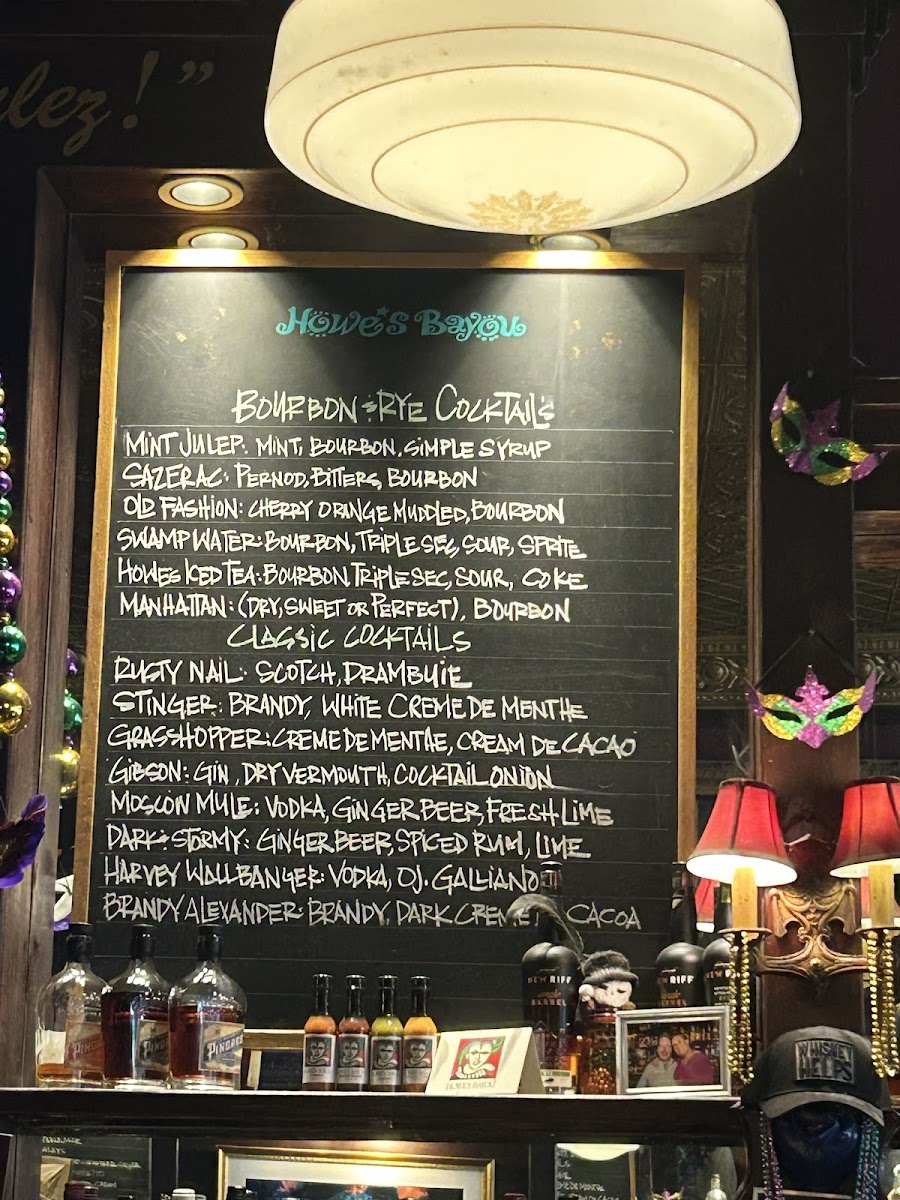 ulez!”
Howe's Bayou
BOURBON & RYE COCKTAILS
MINT JULEP: MINT, BOURBON, SIMPLE SYRUP
SAZERAC: PERNOD, BITTERS, BOURBON
OLD FASHION: CHERRY ORANGE MUDDLED, BOURBON
SWAMP WATER: BOURBON, TRIPLE SEC, SOUR, SPRITE
HOWES ICED TEA: BOURBON, TRIPLE SEC, SOUR, COKE
MANHATTAN: (DRY, SWEET OR PERFECT), BOURBON
CLASSIC COCKTAILS
RUSTY NAIL: SCOTCH, DRAMBUIE
STINGER: BRANDY, WHITE CREME DE MENTHE
GRASSHOPPER: CREME DE MENTHE, CREAM DE CACAO
GIBSON: GIN, DRY VERMOUTH, COCKTAIL ONION
MOSCOW MULE: VODKA, GINGER BEER, FRESH LIME
DARK & STORMY: GINGER BEER, SPICED RUM, LIME
HARVEY WALLBANGER: VODKA, OJ. GALLIANO
BRANDY ALEXANDER: BRANDY, DARK CREME CACOA
NEW RIFF
NEW RIFF
PINGREE
HOWE'S BAYOU
WHISKEY
HELPS